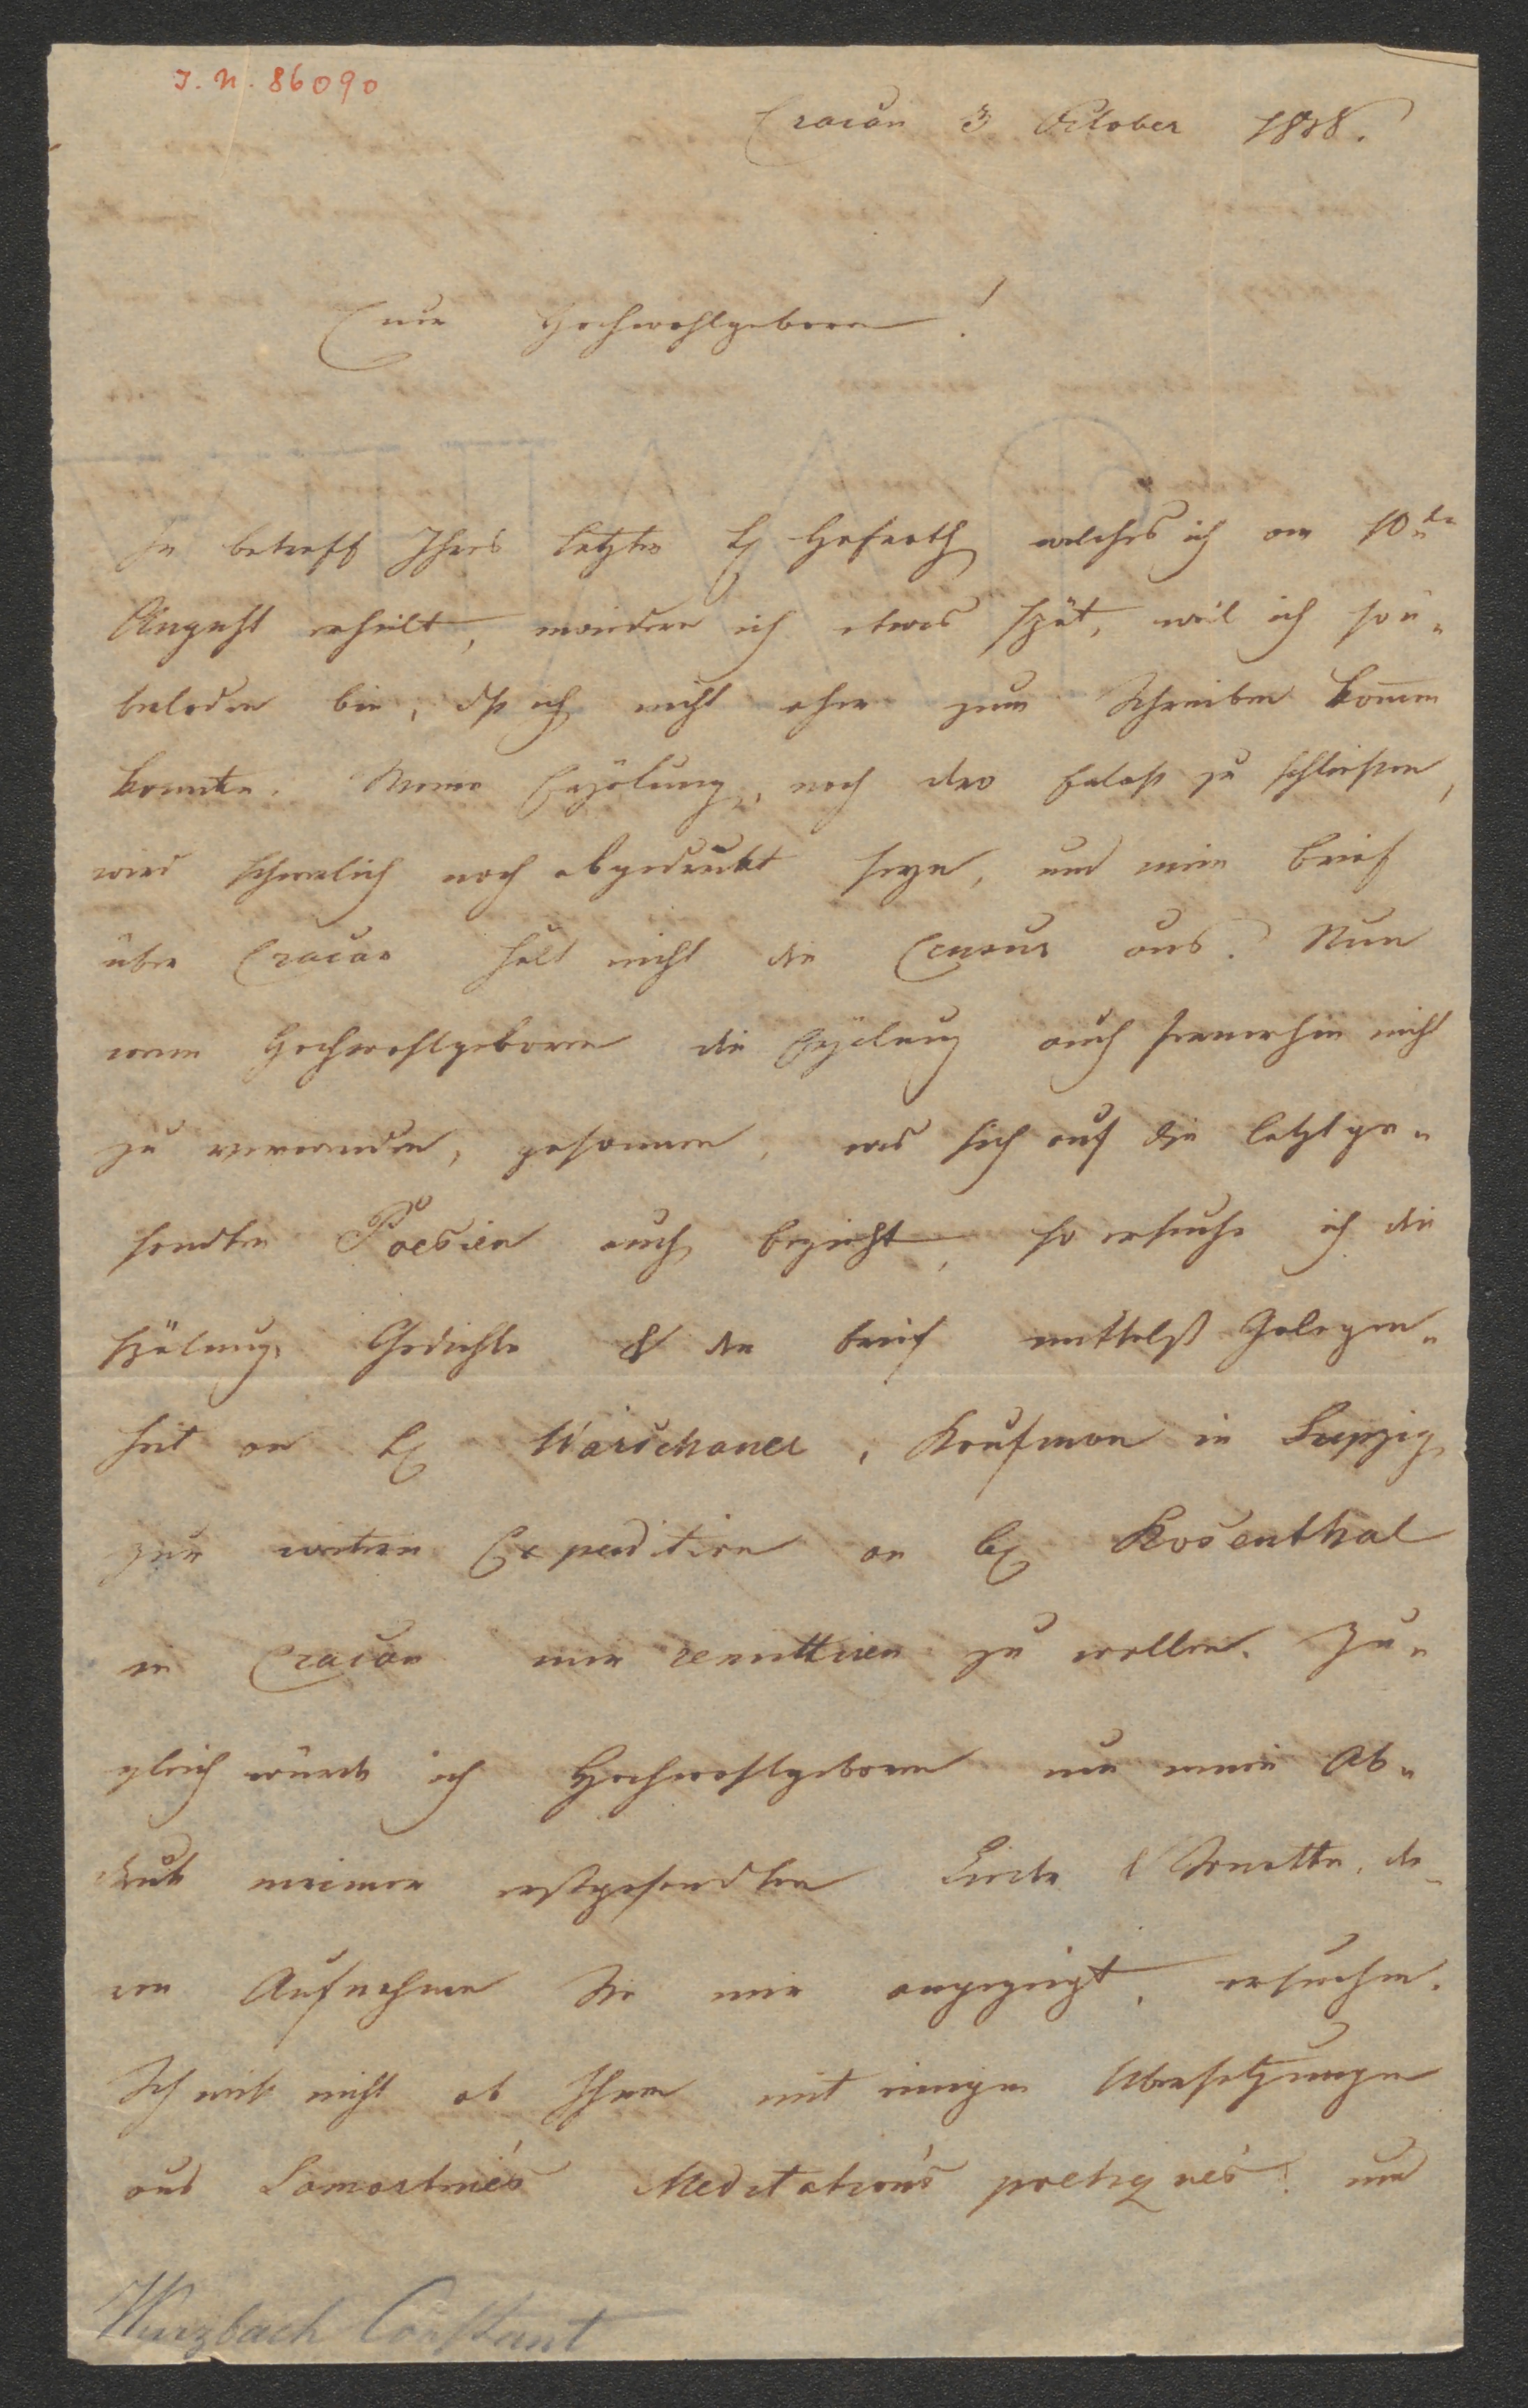 J. N. 86090
Cracau 3 October 1838.
Euer Hochwohlgeboren!
In betreff Ihres letzten H Hofrath welches ich am 10ten
August erhielt, erwiedere ich etwas spät, weil ich so ü=
berladen bin, dß ich nicht eher zum Schreiben kom̄en
konnte. Meine Erzälung, nach dero Erlaß zu schließen,
wird schwerlich noch abgedrukt seyn, und mein Brief
über Cracau hält nicht die Censur aus? Nun
wenn Hochwohlgeboren die Erzälung auch fernerhin nicht
zu verwenden, gesonnen, was sich auf die letztge=
sendten Poesien auch bezieht, so ersuche ich die
Erzälung, Gedichte & den Brief mittelst Gelegen=
heit an H Warschauer, Kaufmann in Leipzig
zur weitern Expedition an H Rosenthal
in Cracau mir remittiren zu wollen. Zu=
gleich würde ich Hochwohlgeboren um einen Ab=
druk meiner erstgesendten Lieder & Sonette, de=
ren Aufnahme Sie mir angezeigt, ersuchen.
Ich weiß nicht ob Ihnen mit einigen Übersetzungen
aus Lamartine's Meditations poetiques? und
Wurzbach Constant